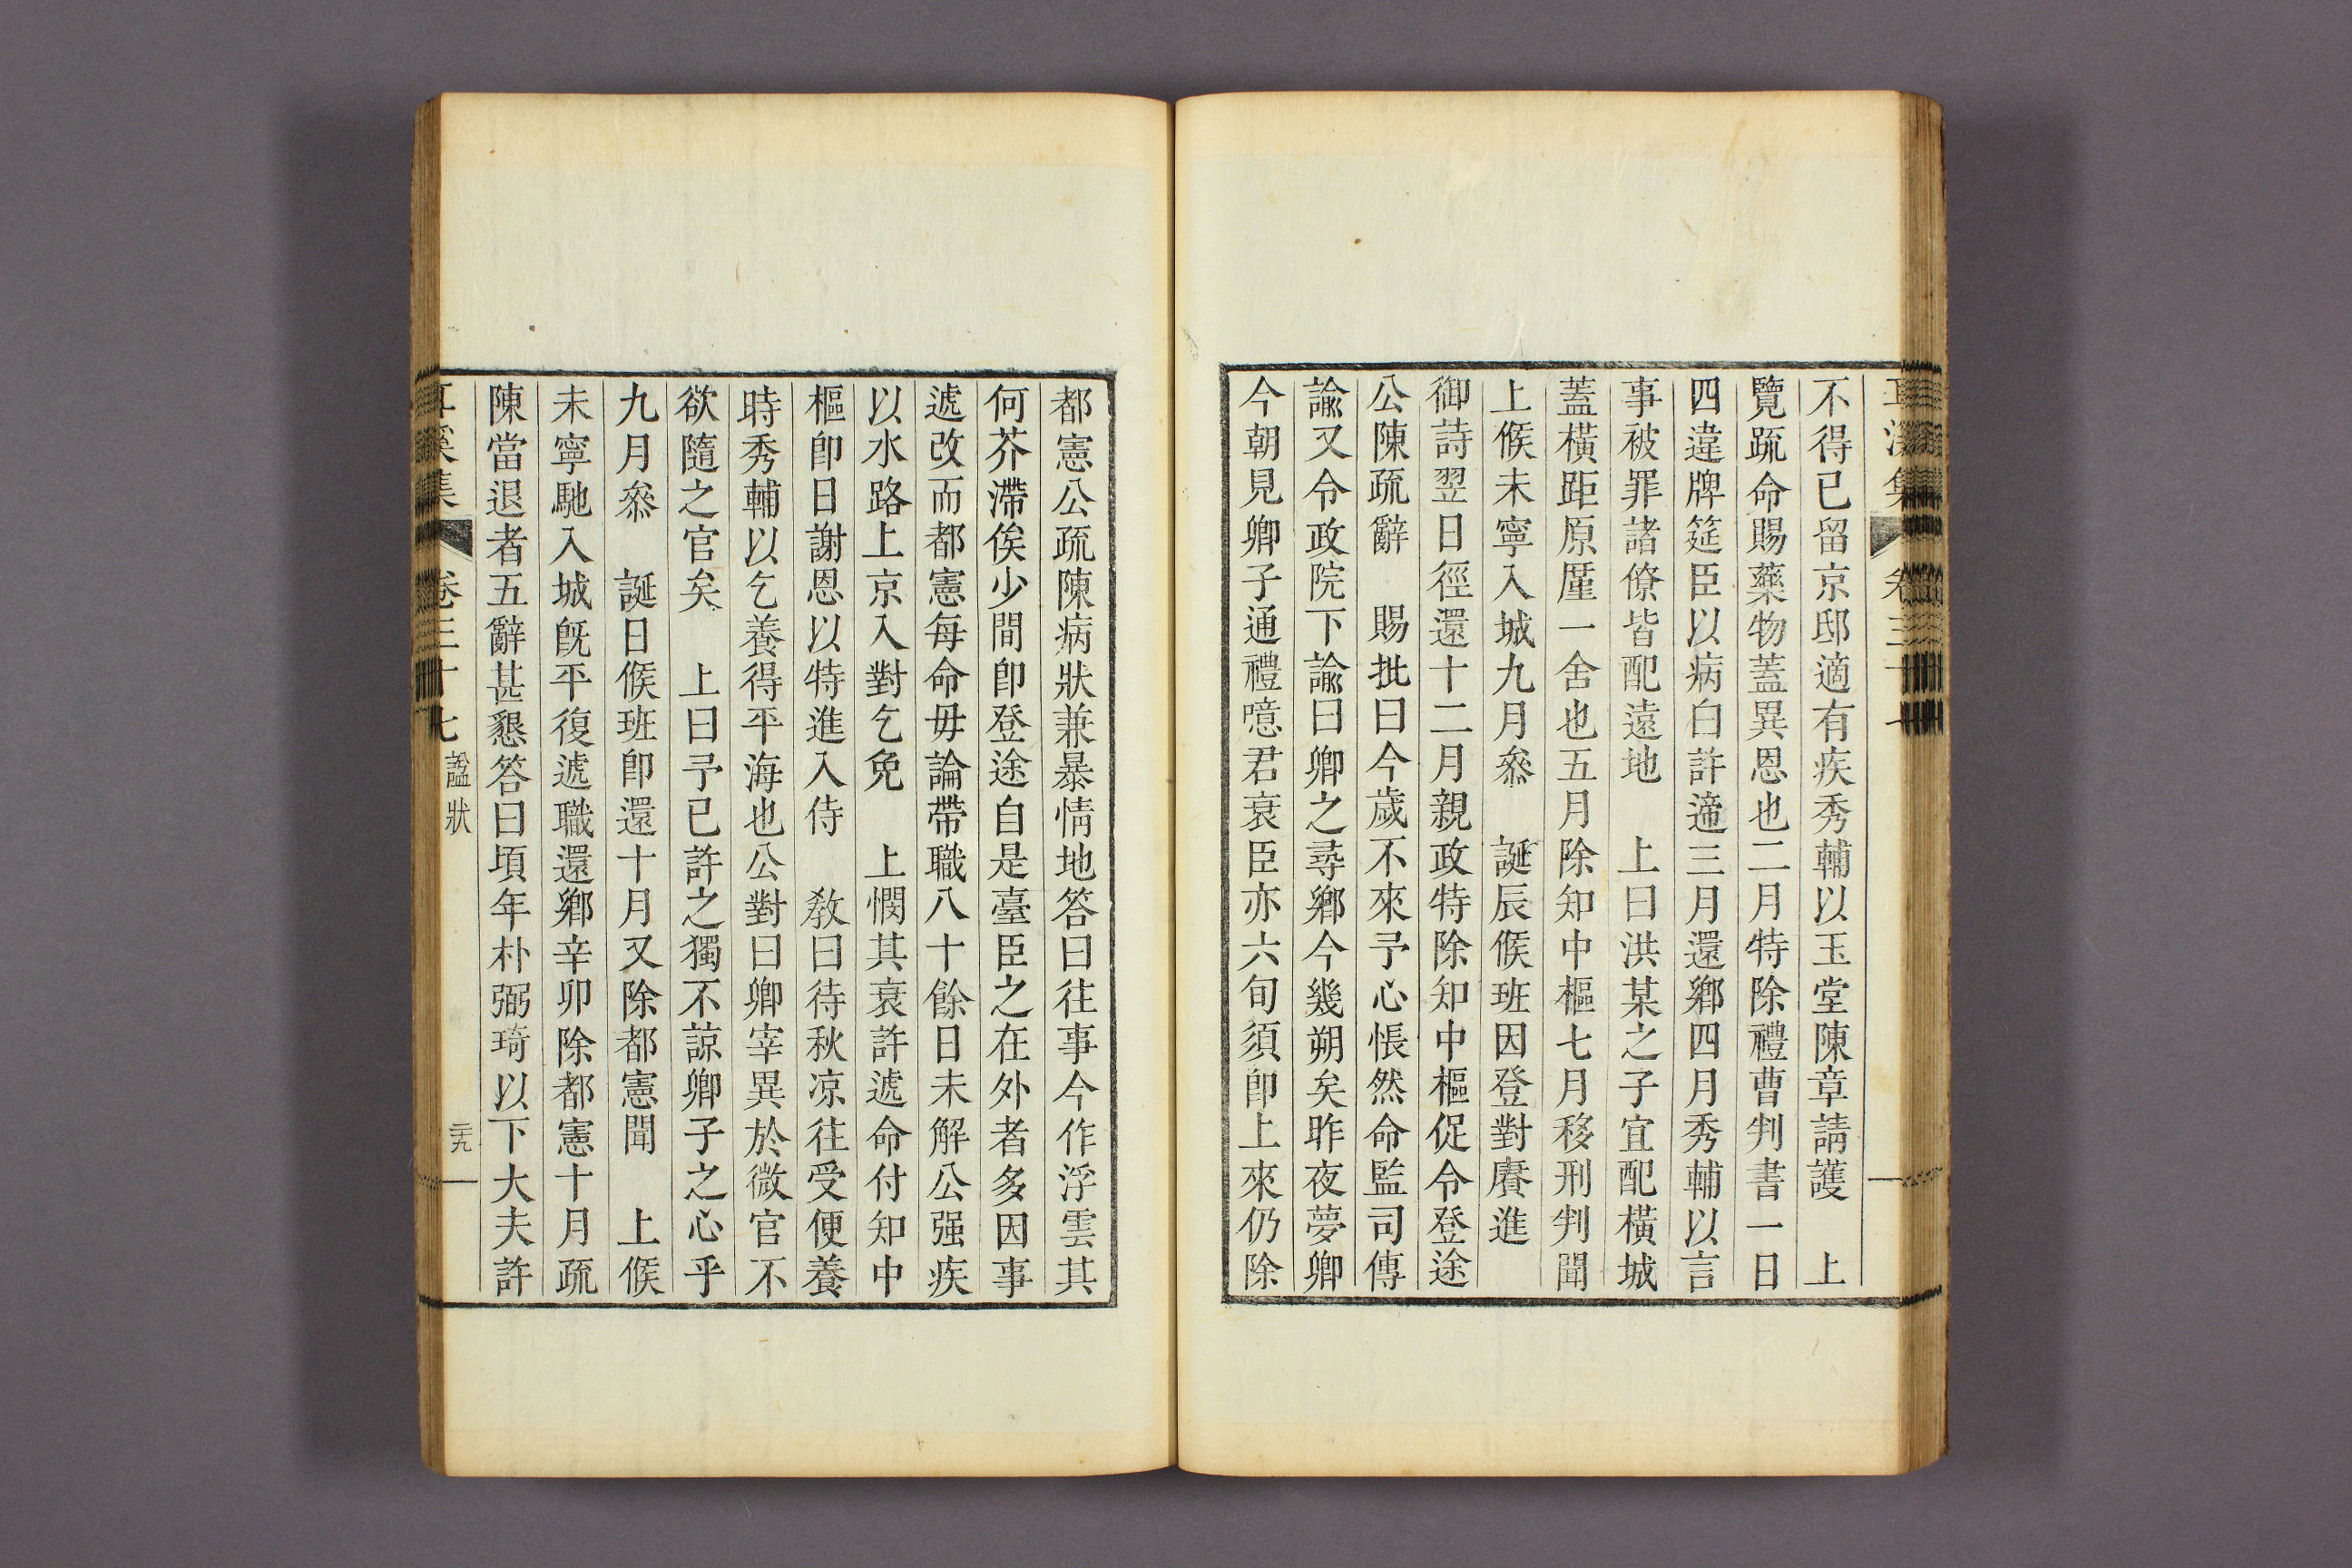 不得已留京邸適有疾秀輔以玉堂陳章請護　上
覽疏命賜藥物蓋異恩也二月特除禮曹判書一日
四違牌筵臣以病白許遞三月還鄉四月秀輔以言
事被罪諸僚皆配遠地　上曰洪某之子宜配橫城
蓋橫距原厪一舍也五月除知中樞七月移刑判聞
上候未寧入城九月叅　誕辰候班因登對賡進
御詩翌日徑還十二月親政特除知中樞促令登途
公陳疏辭　賜批曰今歲不來予心悵然命監司傳
諭又令政院下諭曰卿之尋鄉今幾朔矣昨夜夢卿
今朝見卿子通禮噫君衰臣亦六旬須卽上來仍除
都憲公疏陳病狀兼暴情地答曰往事今作浮雲其
何芥滯俟少間卽登途自是臺臣之在外者多因事
遞改而都憲每命毋論帶職八十餘日未解公强疾
以水路上京入對乞免　上憫其衰許遞命付知中
樞卽日謝恩以特進入侍　敎曰待秋凉往受便養
時秀輔以乞養得平海也公對曰卿宰異於微官不
欲隨之官矣　上曰予已許之獨不諒卿子之心乎
九月叅　誕日候班卽還十月又除都憲聞　上候
未寧馳入城旣平復遞職還鄉辛卯除都憲十月疏
陳當退者五辭甚懇答曰頃年朴弼琦以下大夫許
耳溪集　卷三十七　諡狀　三九